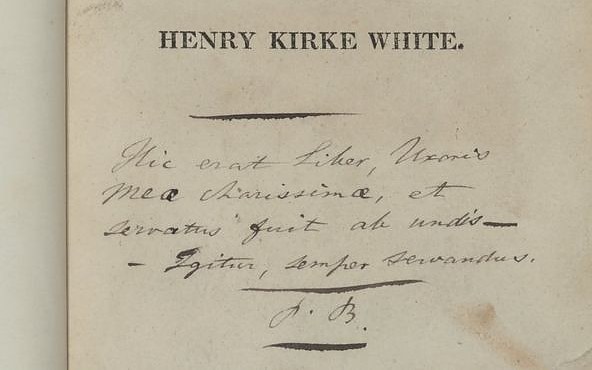 HENRY KIRKE WHITE.
Hic erat Liber, Uxoris
Meæ charissimæ, et
servatus fuit ab undis —
— Igitur, semper servandus.
P. B.